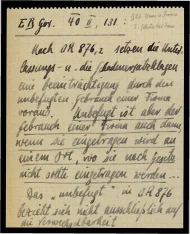 EB Gos. 40 II, 131 :
Nach OR 876,2 setzen die Unter-
lassungs- u. die Schadenersatzklagen
eine Beeinträchtigung durch den
unbefugten Gebrauch einer Firma
voraus. Unbefugt ist aber der
Gebrauch einer Firma auch dann
wenn sie eingetragen wird an
einem Ort, wo sie nach Gesetz
nicht sollte eingetragen werden...
Das "unbefugt" in OR 876
bezieht sich nicht ausschliesslich auf
die